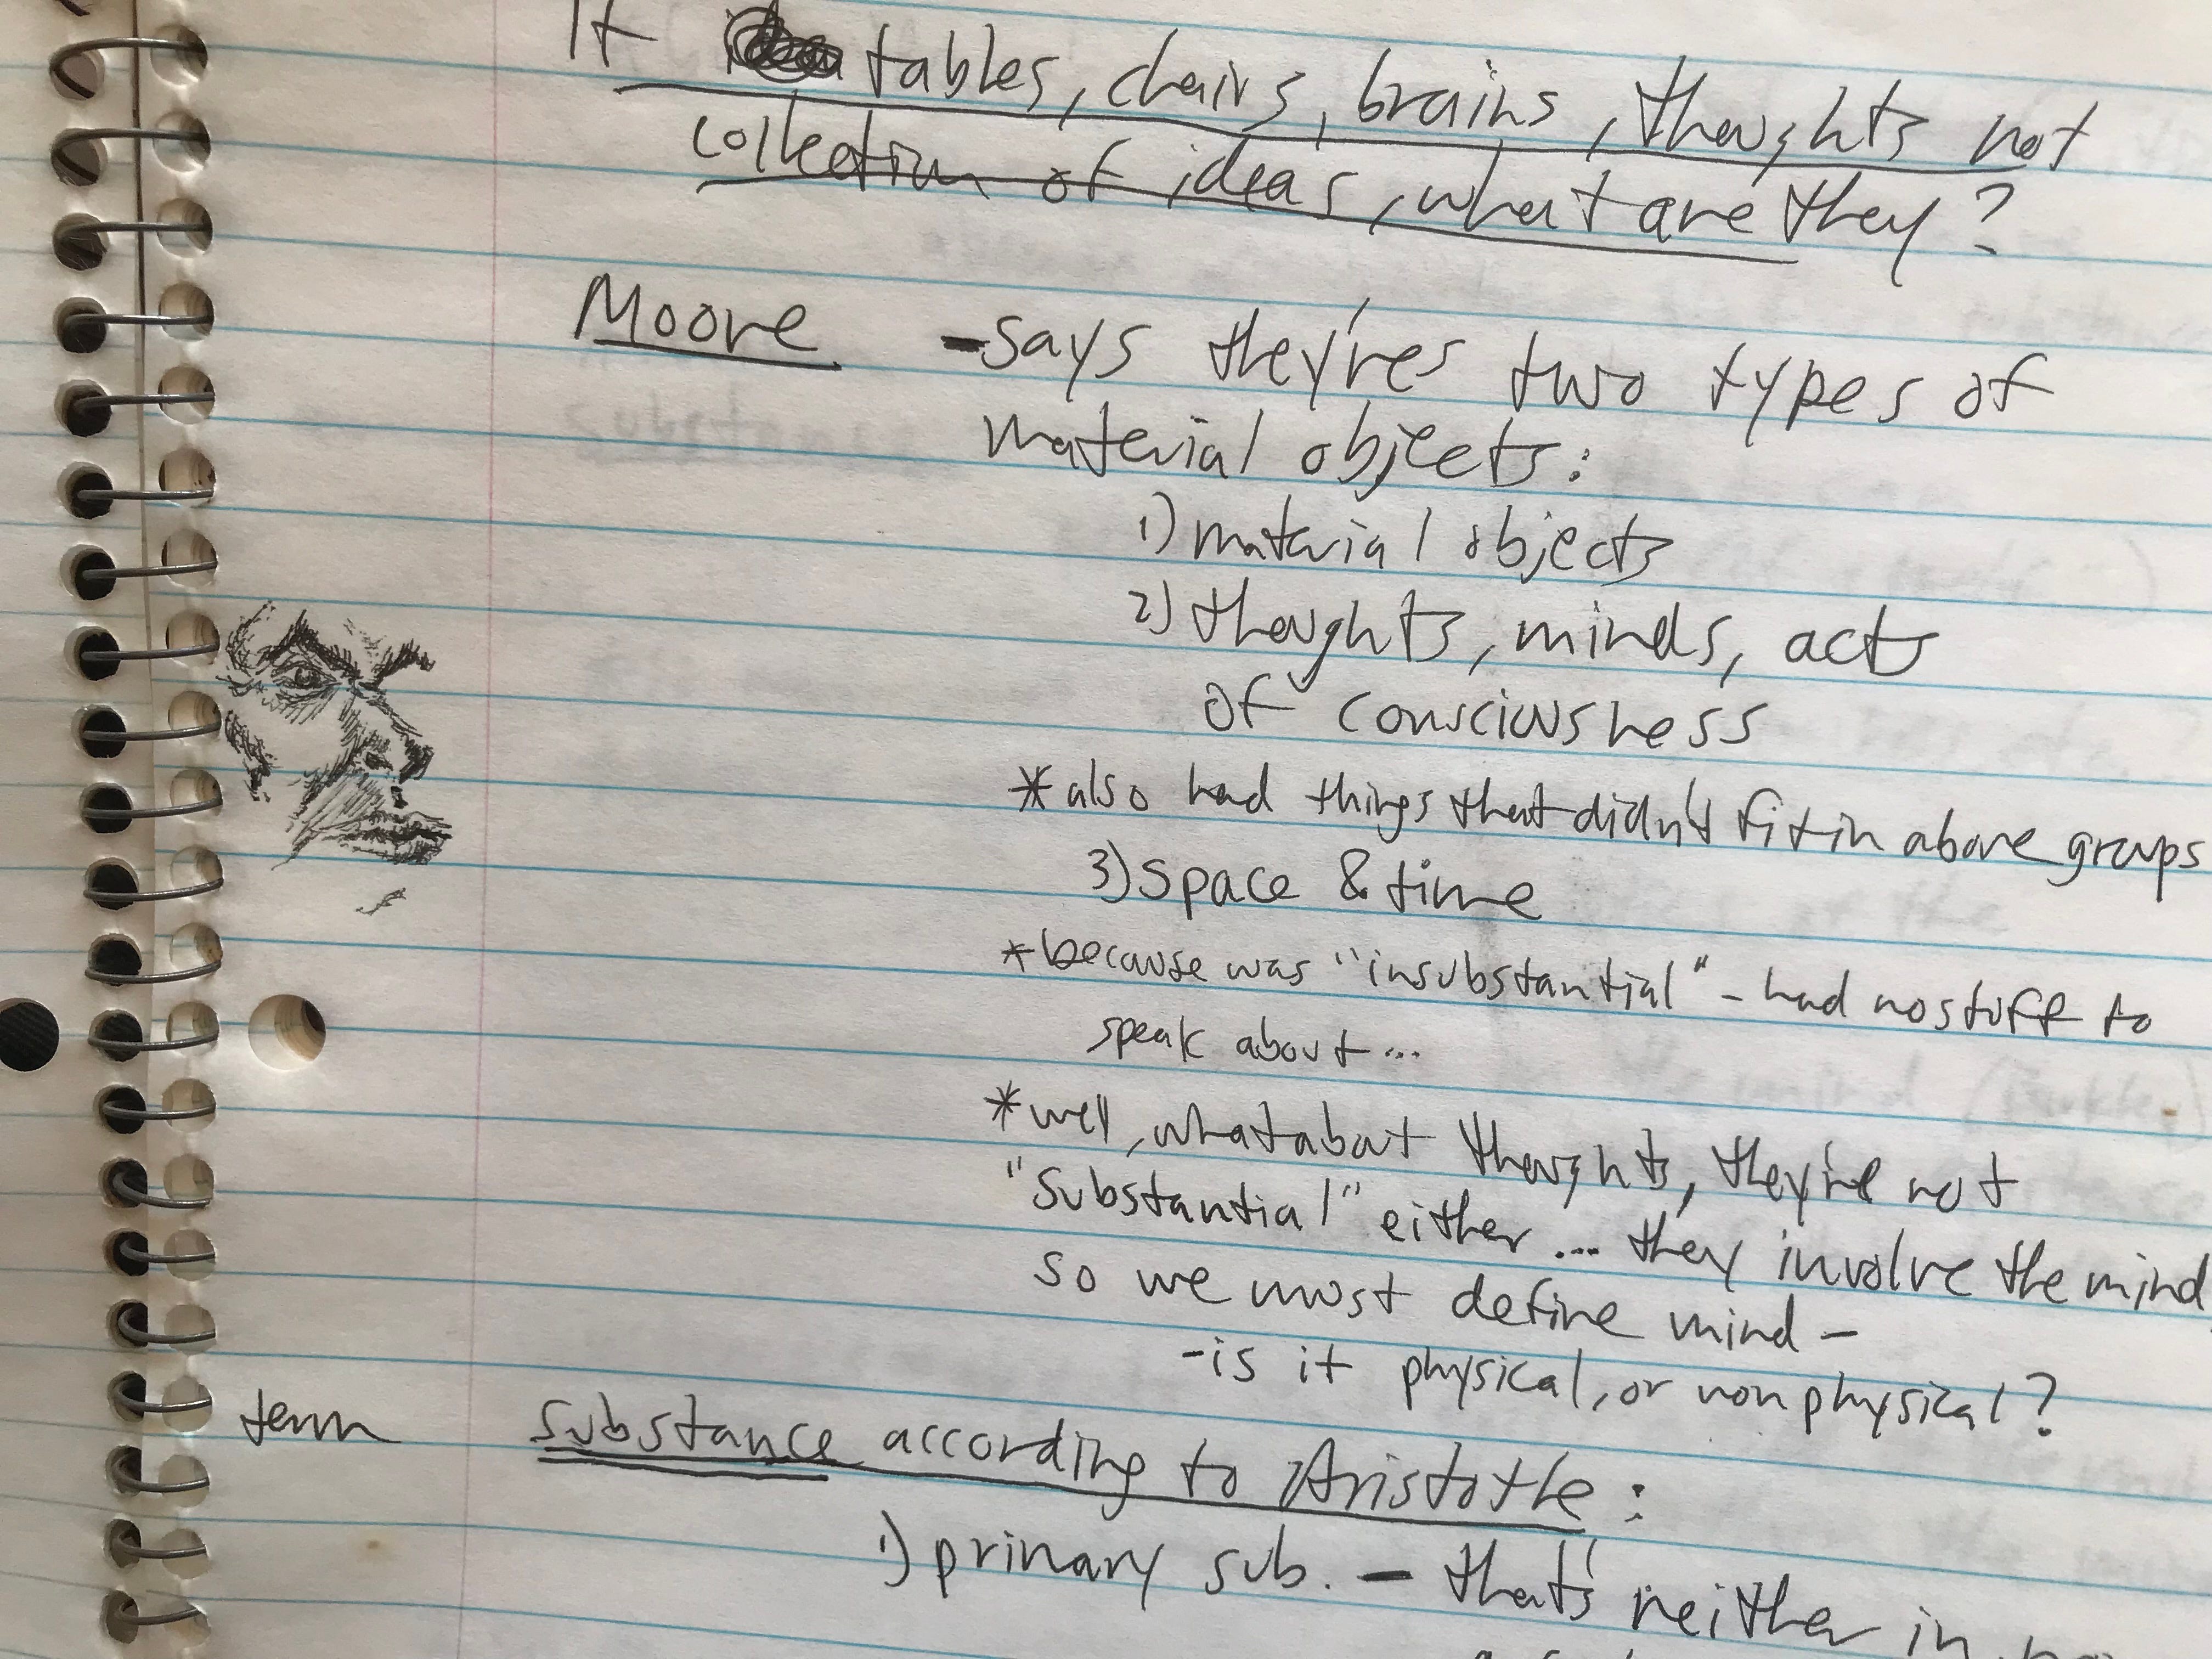 If tables, chairs, brains, thoughts not
collection of ideas, what are they?
Moore - says they're's two types of
material objects:
1) material objects
2) thoughts, minds, acts
of consciousness
* also had things that didn't fit in above groups
3) space & time
* because was "insubstantial" - had no stuff to
speak about...
* well, what about thoughts, they're not
"substantial" either ... they involve the mind
so we must define mind -
- is it physical, or nonphysical?
term substance according to Aristotle:
1) primary sub. - that's neither in